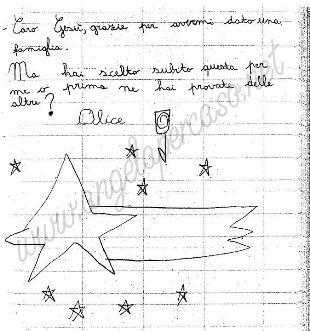 - Caro Gesù, grazie per avermi dato una
famiglia.
Ma hai scelto subito questa per
me o prima ne hai provate delle
altre?
Alice
www.angelopercaso.net